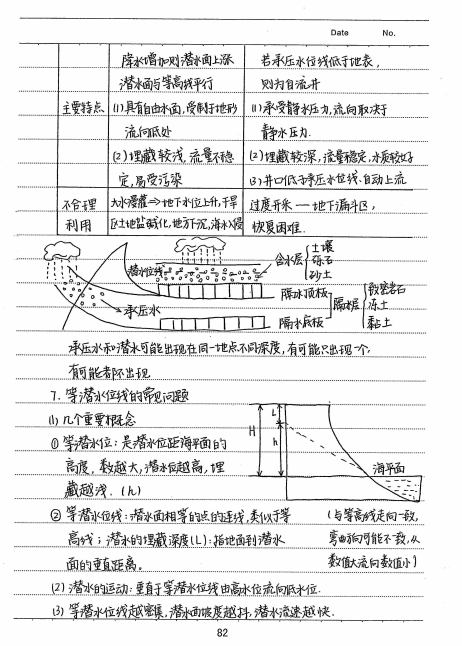 Date No.
降水增加则潜水面上涨 若承压水位线低于地表,
潜水面与等高线平行 则为自流井
主要特点 (1)具有自由水面,受制于地形 (1)承受静水压力,流向取决于
流向低处 静水压力.
(2)埋藏较浅,流量不稳 (2)埋藏较深,流量稳定,水质较好
定,易受污染 (3)井口低于承压水位线、自动上流
不合理 大水漫灌⇒地下水位上升,干旱 过度开采—地下漏斗区,
利用 区土地盐碱化,地方下沉,海水入侵 恢复困难.
潜水位线 含水层 土壤
砾石
砂土
承压水 隔水顶板 隔水层 致密岩石
冻土
隔水底板 黏土
承压水和潜水可能出现在同一地点不同深度,有可能只出现一个,
有可能都不出现.
7. 等潜水位线的常见问题
(1) 几个重要概念
① 等潜水位:是潜水位距海平面的
高度,数越大,潜水位越高,埋
藏越浅.(h)
H L h 海平面
② 等潜水位线:潜水面相等的点的连线,类似于等 (与等高线走向一致,
高线;潜水的埋藏深度(L):指地面到潜水 弯曲方向可能不一致,从
面的垂直距离。 数值大流向数值小)
(2) 潜水的运动:垂直于等潜水位线由高水位流向低水位.
(3) 等潜水位线越密集,潜水面坡度越抖,潜水流速越快.
82